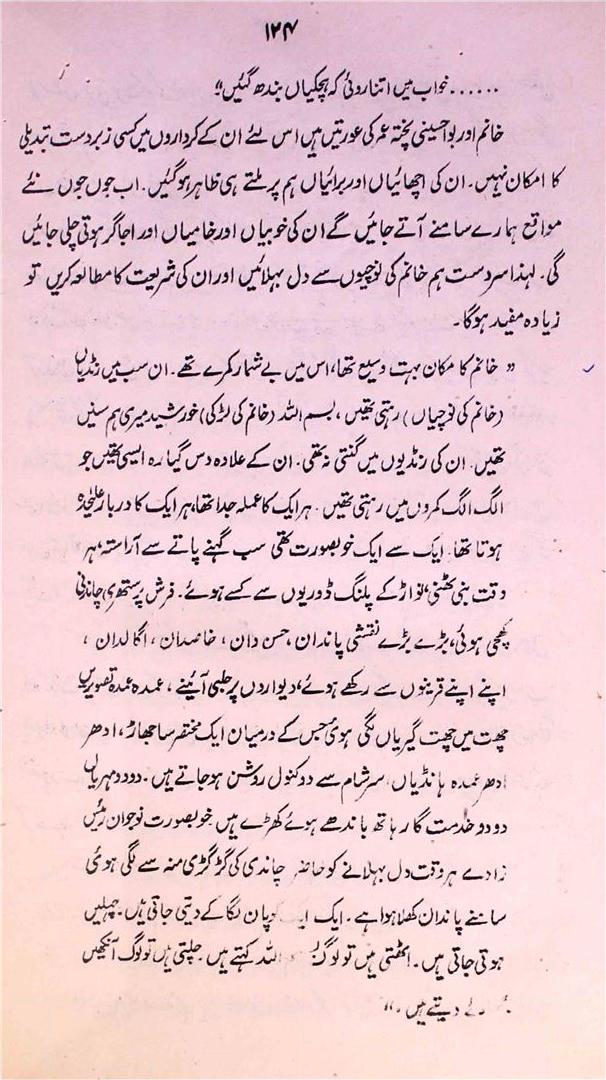 ۱۲۴
...... خواب میں اتنا روئی کہ ہچکیاں بندھ گئیں"
خانم اور بوا حسینی پختہ عمر کی عورتیں ہیں اس لئے ان کے کرداروں میں کسی زبردست تبدیلی
کا امکان نہیں۔ ان کی اچھائیاں اور برائیاں ہم پر ملتے ہی ظاہر ہو گئیں۔ اب جوں جوں نئے
مواقع ہمارے سامنے آتے جائیں گے ان کی خوبیاں اور خامیاں اور اجاگر ہوتی چلی جائیں
گی۔ لہذا سر دست ہم خانم کی نوچیوں سے دل بہلائیں اور ان کی شریعت کا مطالعہ کریں تو
زیادہ مفید ہوگا۔
" خانم کا مکان بہت وسیع تھا، اس میں بے شمار کمرے تھے۔ ان سب میں رنڈیاں
(خانم کی نوچیاں) رہتی تھیں، بسم اللہ (خانم کی لڑکی) خورشید میری ہم سنیں
تھیں۔ ان کی رنڈیوں میں گنتی نہ تھی۔ ان کے علاوہ دس گیارہ ایسی تھیں جو
الگ الگ کمروں میں رہتی تھیں۔ ہر ایک کا عملہ جدا تھا، ہر ایک کا دربار علیحدہ
ہوتا تھا۔ ایک سے ایک خوبصورت تھی سب گہنے پاتے سے آراستہ، ہر
وقت بنی ٹھنی، نواڑ کے پلنگ ڈوریوں سے کسے ہوئے۔ فرش پر ستھری چاندنی
کھچی ہوئی، بڑے بڑے نقشی پاندان، حسن دان، خاصدان، اگالدان،
اپنے اپنے قرینوں سے رکھے ہوئے، دیواروں پر حلبی آئینے، عمدہ عمدہ تصویریں
چھت میں چھت گیریاں لگی ہوئی جس کے درمیان ایک مختصر سا جھاڑ، ادھر
ادھر عمدہ ہانڈیاں سر شام سے دو کنول روشن ہو جاتے ہیں۔ دو دو مہریاں
دو دو خدمت گار ہاتھ باندھے ہوئے کھڑے ہیں۔ خوبصورت نوجوان رئیس
زادے ہر وقت دل بہلانے کو حاضر چاندی کی گڑگڑی منہ سے لگی ہوئی
سامنے پاندان کھلا ہوا ہے۔ ایک ایک کو پان لگا کے دیتی جاتی ہیں۔ چہلیں
ہوتی جاتی ہیں۔ اٹھتی ہیں تو لوگ اللہ کہتے ہیں۔ چلتی ہیں تو لوگ آنکھیں
دیتے ہیں۔"